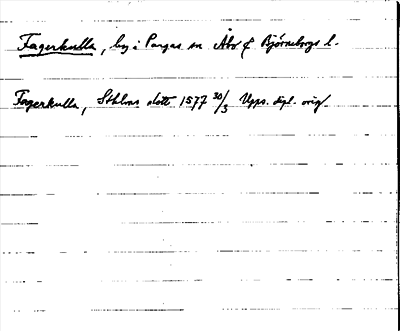 Fagerkulla, by i Pargas sn Åbo & Björneborgs l.
Fagerkulla, Sthlms slott 1577 30/3 Upps. dipl. orig.